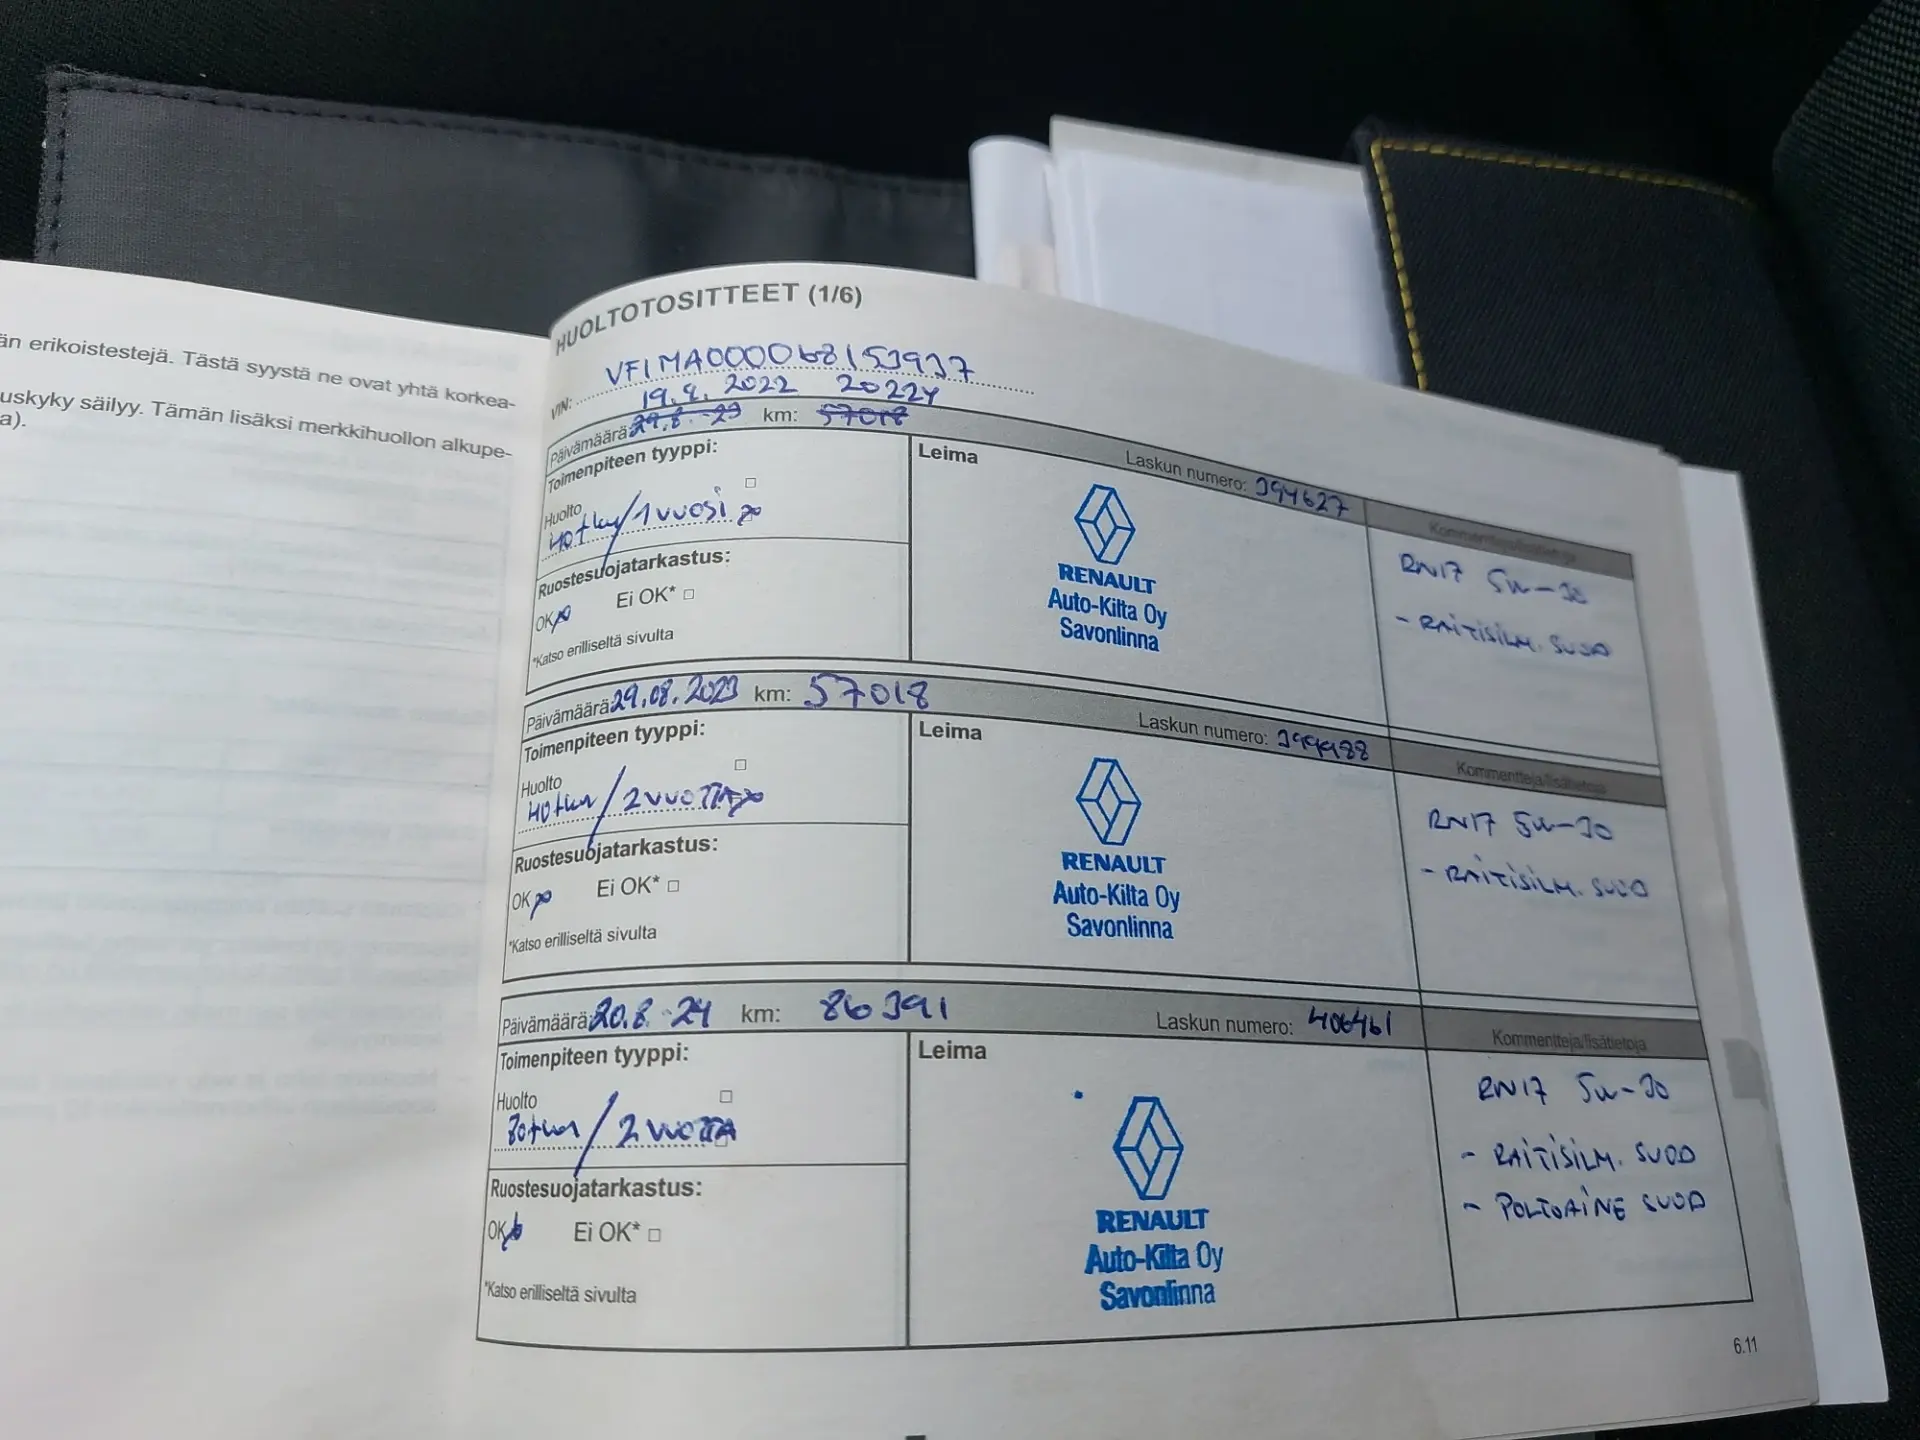 än erikoistestejä. Tästä syystä ne ovat yhtä korkea-
uskyky säilyy. Tämän lisäksi merkkihuollon alkupe-
a).
HUOLTOTOSITTEET (1/6)
VIN: VF1MA000068153937
19.8.2022 20224
Päivämäärä 29.8.-23 km: 57018
Laskun numero: 394627
Toimenpiteen tyyppi:
Huolto
40tkm/1 vuosi
Ruostesuojatarkastus:
OK Ei OK*
*Katso erilliseltä sivulta
Leima
RENAULT
Auto-Kilta Oy
Savonlinna
Kommentteja/lisätietoja
RN17 5W-30
- RAITISILM. SUOD
Päivämäärä 29.08.2023 km: 57018
Laskun numero: 399988
Toimenpiteen tyyppi:
Huolto
40tkm/2 VUOTTA
Ruostesuojatarkastus:
OK Ei OK*
*Katso erilliseltä sivulta
Leima
RENAULT
Auto-Kilta Oy
Savonlinna
Kommentteja/lisätietoja
RN17 5W-30
- RAITISILM. SUOD
Päivämäärä 20.8.-24 km: 86391
Laskun numero: 406461
Toimenpiteen tyyppi:
Huolto
/2 VUOTTA
Ruostesuojatarkastus:
OK Ei OK*
*Katso erilliseltä sivulta
Leima
RENAULT
Auto-Kilta Oy
Savonlinna
Kommentteja/lisätietoja
RN17 5W-30
- RAITISILM. SUOD
- POLTOAINE SUOD
6.11